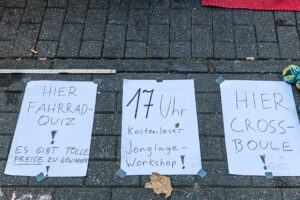 HIER
FAHRRAD-
QUIZ
!
ES GIBT TOLLE
PREISE ZU GEWINNEN
17 Uhr
Kostenloser
Jonglage-
Workshop!
HIER
CROSS-
BOULE
!